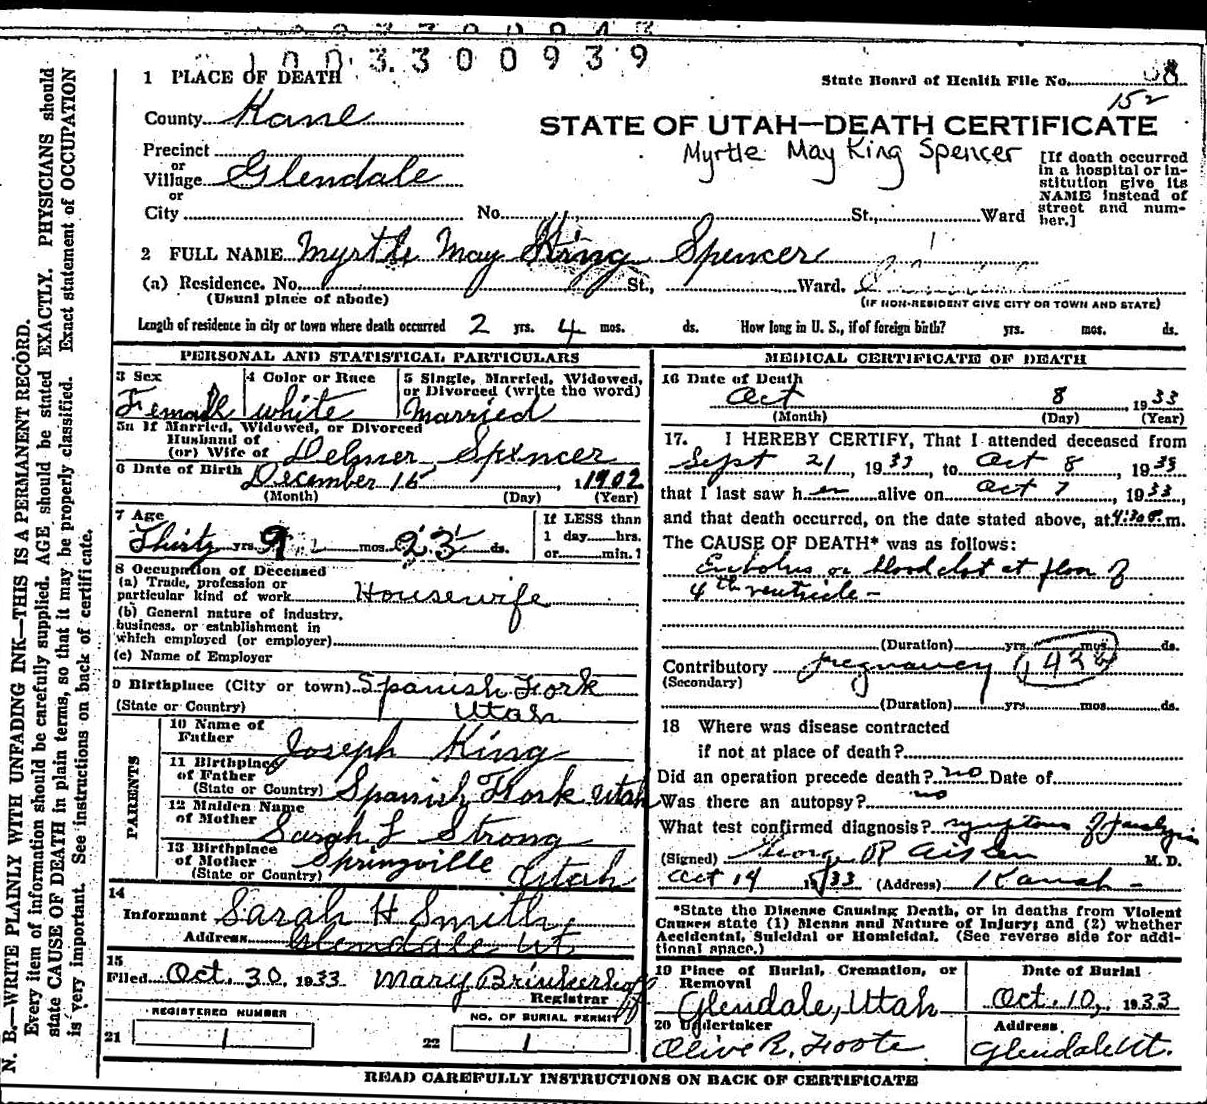 1003300939
1 PLACE OF DEATH
State Board of Health File No. 58
152
County Kane
STATE OF UTAH—DEATH CERTIFICATE
Myrtle May King Spencer
Precinct
or
Village Glendale
or
City No. St., Ward
[If death occurred
in a hospital or in-
stitution give its
NAME instead of
street and num-
ber.]
2 FULL NAME Myrtle May King Spencer
(a) Residence. No. St., Ward.
(Usual place of abode)
(IF NON-RESIDENT GIVE CITY OR TOWN AND STATE)
Length of residence in city or town where death occurred 2 yrs. 4 mos. ds. How long in U. S., if of foreign birth? yrs. mos. ds.
PERSONAL AND STATISTICAL PARTICULARS
3 Sex
Female
4 Color or Race
white
5 Single, Married, Widowed,
or Divorced (write the word)
Married
5a If Married, Widowed, or Divorced
Husband of
(or) Wife of Delmer Spencer
6 Date of Birth December 15, 1902
(Month) (Day) (Year)
7 Age
Thirty yrs. 9 mos. 23 ds.
If LESS than
1 day hrs.
or min.?
8 Occupation of Deceased
(a) Trade, profession or
particular kind of work Housewife
(b) General nature of industry,
business, or establishment in
which employed (or employer)
(c) Name of Employer
9 Birthplace (City or town) Spanish Fork
(State or Country) Utah
PARENTS
10 Name of
Father Joseph King
11 Birthplace
of Father
(State or Country) Spanish Fork Utah
12 Maiden Name
of Mother Sarah L Strong
13 Birthplace
of Mother
(State or Country) Springville Utah
14
Informant Sarah H Smith
Address Glendale Ut
15
Filed Oct. 30, 1933 Mary Brinkerhoff
Registrar
REGISTERED NUMBER
21 1
NO. OF BURIAL PERMIT
22 1
MEDICAL CERTIFICATE OF DEATH
16 Date of Death
Oct 8, 1933
(Month) (Day) (Year)
17. I HEREBY CERTIFY, That I attended deceased from
Sept 21, 1933, to Oct 8, 1933
that I last saw her alive on Oct 7, 1933,
and that death occurred, on the date stated above, at 4:30 P. m.
The CAUSE OF DEATH* was as follows:
Embolus or blood clot at floor of
4th ventricle -
(Duration) yrs. mos. ds.
Contributory pregnancy
(Secondary)
(Duration) yrs. mos. ds.
18 Where was disease contracted
if not at place of death?
Did an operation precede death? no Date of
Was there an autopsy? no
What test confirmed diagnosis? symptoms of paralysis
(Signed) George R Aiken M. D.
Oct 14 1933 (Address) Kanab -
*State the Disease Causing Death, or in deaths from Violent
Causes state (1) Means and Nature of Injury; and (2) whether
Accidental, Suicidal or Homicidal. (See reverse side for addi-
tional space.)
19 Place of Burial, Cremation, or
Removal
Glendale, Utah
Date of Burial
Oct. 10, 1933
20 Undertaker
Olive R. Foote
Address
Glendale Ut.
READ CAREFULLY INSTRUCTIONS ON BACK OF CERTIFICATE
N. B.—WRITE PLAINLY WITH UNFADING INK—THIS IS A PERMANENT RECORD.
Every item of information should be carefully supplied. AGE should be stated EXACTLY. PHYSICIANS should
state CAUSE OF DEATH in plain terms, so that it may be properly classified. Exact statement of OCCUPATION
is very important. See instructions on back of certificate.